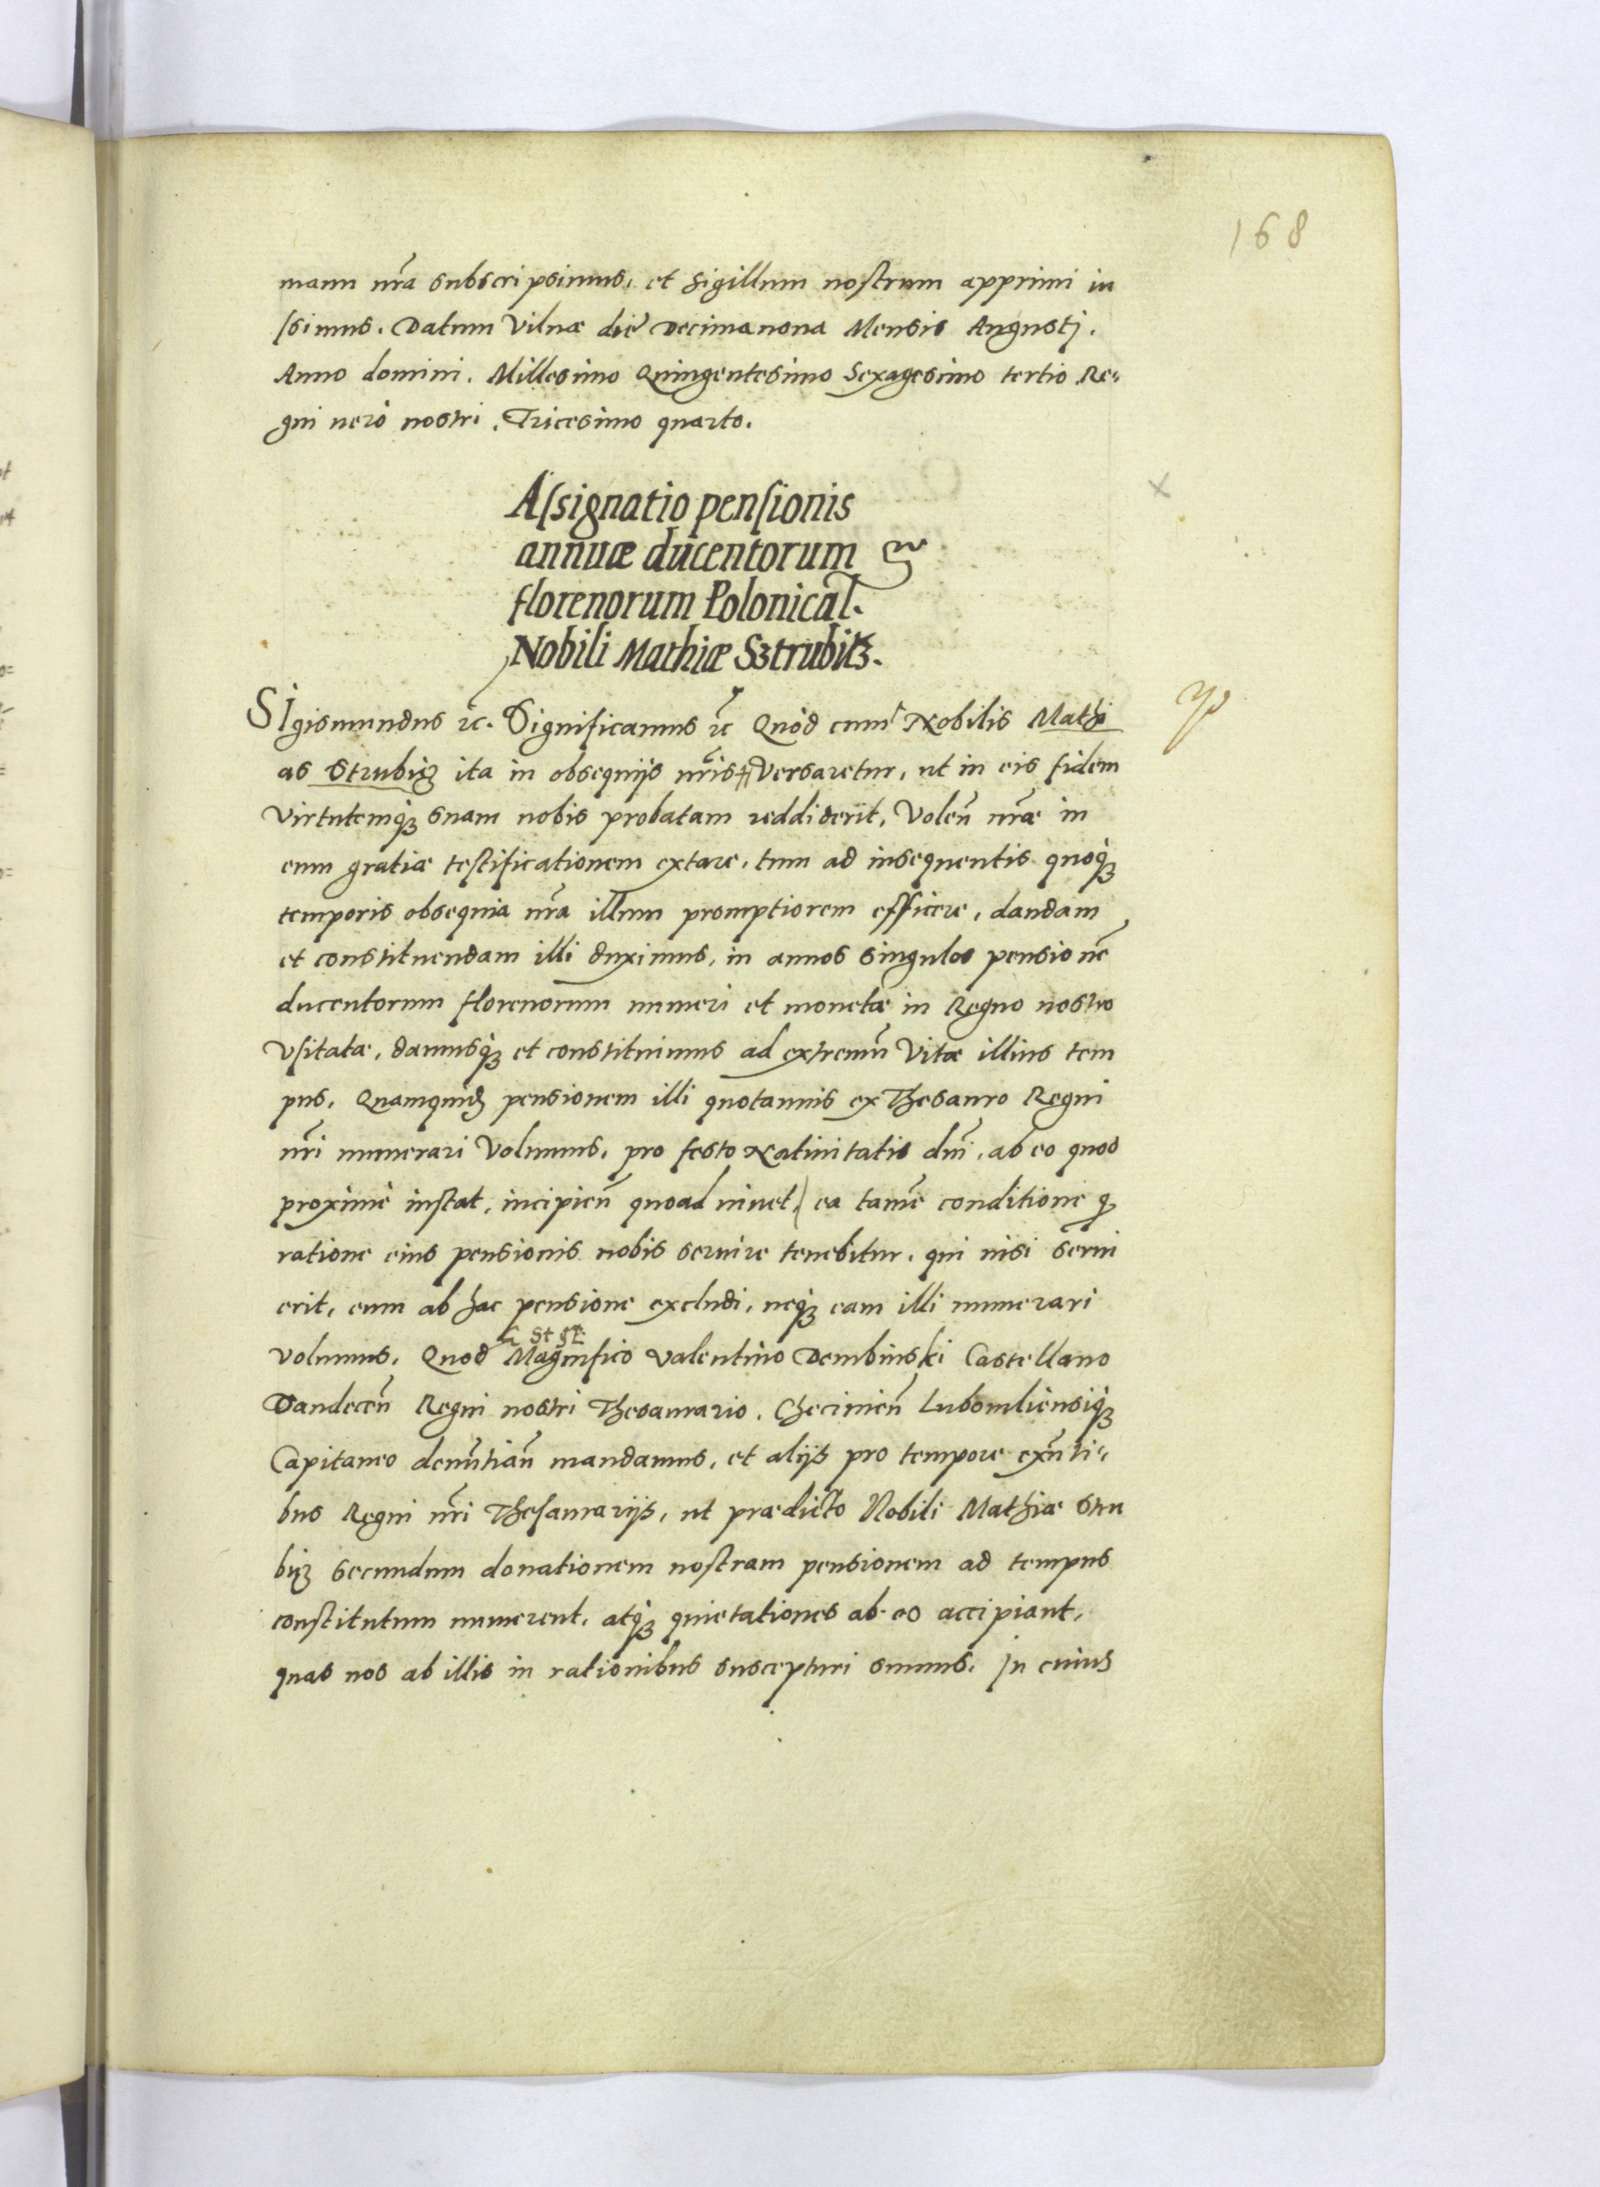 168
manu nr̃a subscripsimus, et sigillum nostrum apprimi iu
ssimus. Datum Vilnæ die Decimanona Mensis Augustj.
Anno domini. Millesimo Quingentesimo Sexagesimo tertio Re-
gni uero nostri. Tricesimo quarto.
Assignatio pensionis
annuæ ducentorum
florenorum Polonical.
Nobili Mathiæ Sztrubitz.
SIgismundus ꝛc. Significamus ꝛc Quòd cum Nobilis Mathi
as Strubiz ita in obsequijs nr̃is versaretur, ut in eis fidem
Virtutemq́ꝫ suam nobis probatam reddiderit, Volen̄ nr̃æ in
eum gratiæ testificationem extare, tum ad insequentis quoq́ꝫ
temporis obsequia nr̃a illum promptiorem efficere, dandam
et constituendam illi duximus, in annos singulos pensionē
ducentorum florenorum numeri et monetæ in Regno nostro
Vsitatæ, damusq́ꝫ et constituimus ad extremū Vitæ illius tem
pus, Quamquidē pensionem illi quotannis ex Thesauro Regni
nr̃i numerari Volumus, pro festo Natiuitatis dn̄i, ab eo quod
proximè instat, incipien̄ quoad uiuet, ea tamē conditione ꝙ
ratione eius pensionis nobis seruire tenebitur, qui nisi serui
erit, eum ab hac pensione excludi, neq́ꝫ eam illi numerari
volumus. Quod Magnifico Valentino Dembinski Castellano
Sandecen̄ Regni nostri Thesaurario. Checinien̄ Lubomliensiq́ꝫ
Capitaneo denūtian̄ mandamus, et alijs pro tempore exn̄ti-
bus Regni nr̃i Thesaurarijs, ut prædicto Nobili Mathiæ Stru
biz secundum donationem nostram pensionem ad tempus
constitutum numerent, atq́ꝫ quietationes ab eo accipiant,
quas nos ab illis in rationibus suscepturi sumus. In cuius